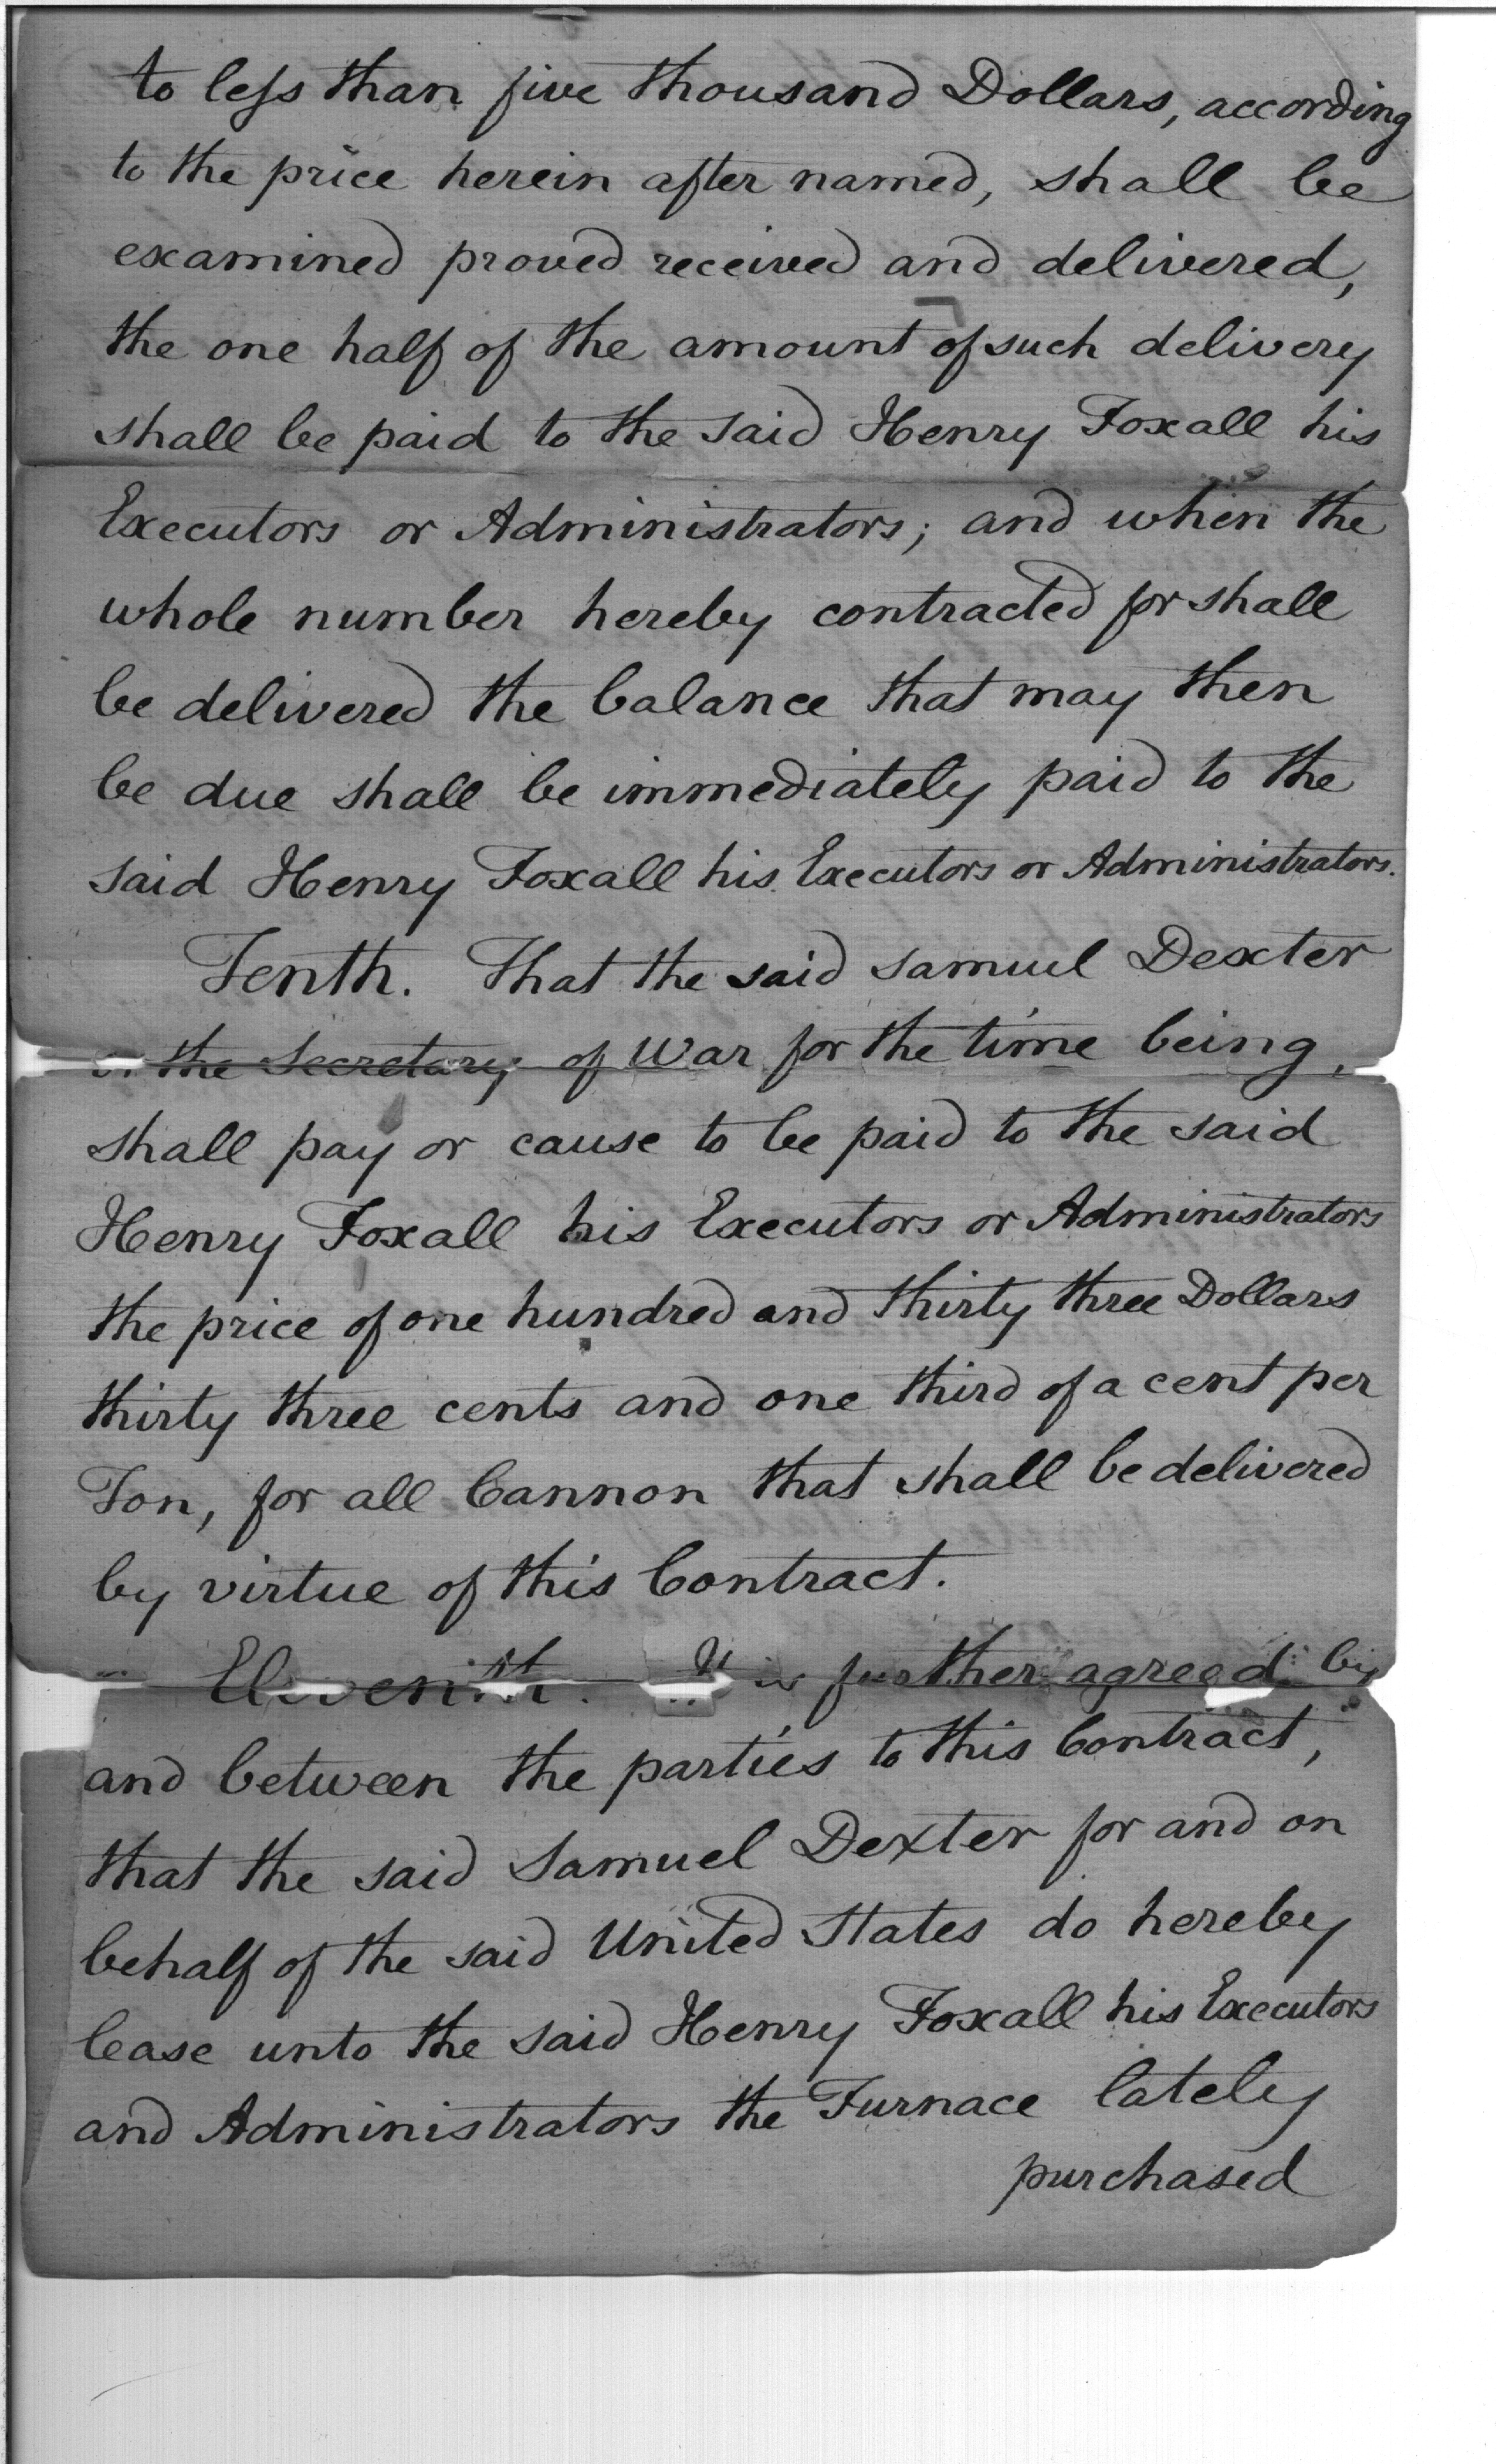 to less than five thousand Dollars, according
to the price herein after named, shall be
examined proved received and delivered,
the one half of the amount of such delivery
shall be paid to the said Henry Foxall his
Executors or Administrators; and when the
whole number hereby contracted for shall
be delivered the balance that may then
be due shall be immediately paid to the
said Henry Foxall his Executors or Administrators.
Tenth. That the said Samuel Dexter
or the Secretary of War for the time being,
shall pay or cause to be paid to the said
Henry Foxall his Executors or Administrators
the price of one hundred and thirty three Dollars
thirty three cents and one third of a cent per
Ton, for all Cannon that shall be delivered
by virtue of this Contract.
Eleventh. It is further agreed by
and between the parties to this Contract,
that the said Samuel Dexter for and on
behalf of the said United States do hereby
lease unto the said Henry Foxall his Executors
and Administrators the Furnace lately
purchased